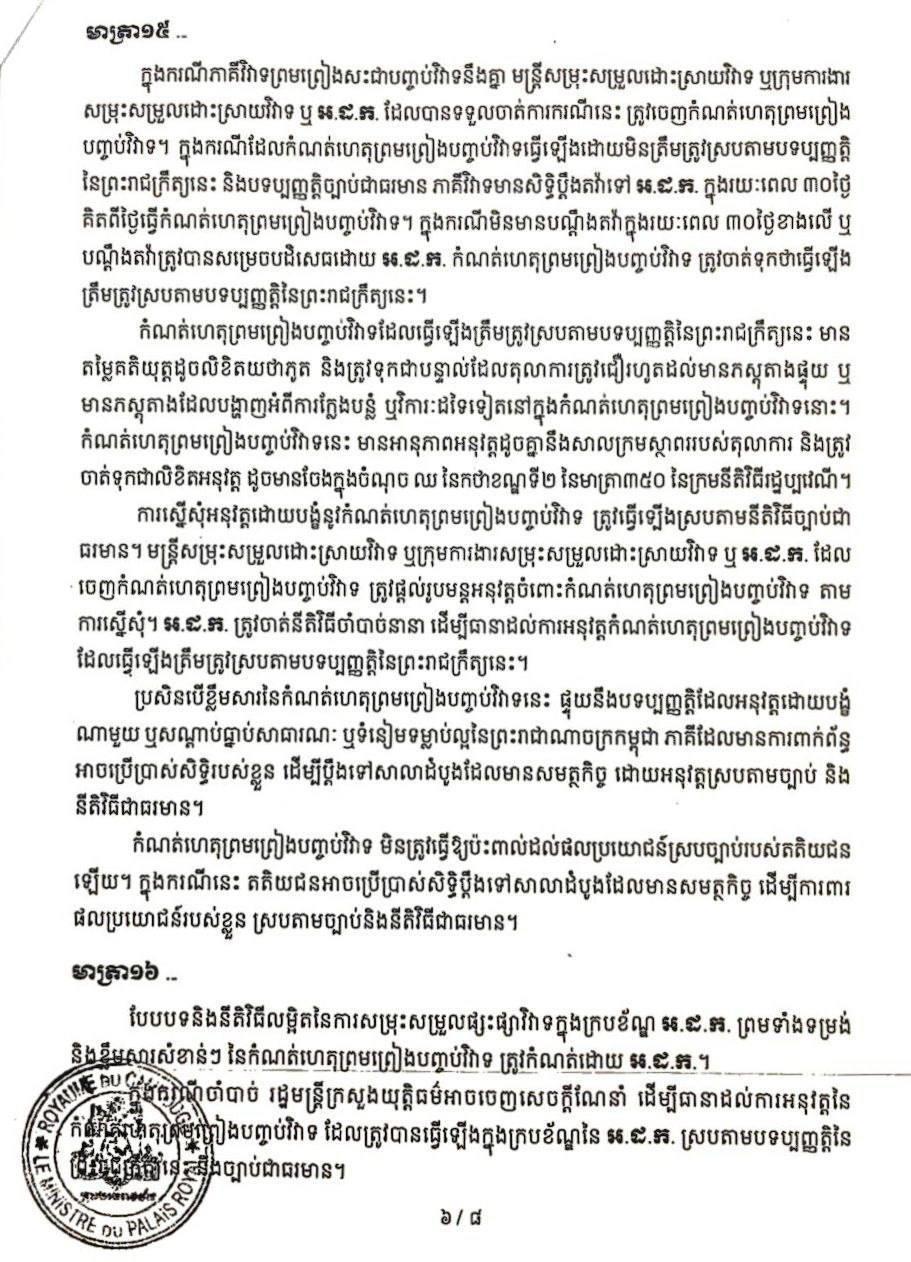 មាត្រា១៥ ..
ក្នុងករណីភាគីវិវាទព្រមព្រៀងសះជាបញ្ចប់វិវាទនឹងគ្នា មន្ត្រីសម្រុះសម្រួលដោះស្រាយវិវាទ ឬក្រុមការងារ
សម្រុះសម្រួលដោះស្រាយវិវាទ ឬ អ.ជ.ភ. ដែលបានទទួលចាត់ការករណីនេះ ត្រូវចេញកំណត់ហេតុព្រមព្រៀង
បញ្ចប់វិវាទ។ ក្នុងករណីដែលកំណត់ហេតុព្រមព្រៀងបញ្ចប់វិវាទធ្វើឡើងដោយមិនត្រឹមត្រូវស្របតាមបទប្បញ្ញត្តិ
នៃព្រះរាជក្រឹត្យនេះ និងបទប្បញ្ញត្តិច្បាប់ជាធរមាន ភាគីវិវាទមានសិទ្ធិប្ដឹងតវ៉ាទៅ អ.ជ.ភ. ក្នុងរយៈពេល ៣០ថ្ងៃ
គិតពីថ្ងៃធ្វើកំណត់ហេតុព្រមព្រៀងបញ្ចប់វិវាទ។ ក្នុងករណីមិនមានបណ្ដឹងតវ៉ាក្នុងរយៈពេល ៣០ថ្ងៃខាងលើ ឬ
បណ្ដឹងតវ៉ាត្រូវបានសម្រេចបដិសេធដោយ អ.ជ.ភ. កំណត់ហេតុព្រមព្រៀងបញ្ចប់វិវាទ ត្រូវចាត់ទុកថាធ្វើឡើង
ត្រឹមត្រូវស្របតាមបទប្បញ្ញត្តិនៃព្រះរាជក្រឹត្យនេះ។
កំណត់ហេតុព្រមព្រៀងបញ្ចប់វិវាទដែលធ្វើឡើងត្រឹមត្រូវស្របតាមបទប្បញ្ញត្តិនៃព្រះរាជក្រឹត្យនេះ មាន
តម្លៃគតិយុត្តដូចលិខិតយថាភូត និងត្រូវទុកជាបន្ទាល់ដែលតុលាការត្រូវជឿរហូតដល់មានភស្តុតាងផ្ទុយ ឬ
មានភស្តុតាងដែលបង្ហាញអំពីការក្លែងបន្លំ ឬវិការៈដទៃទៀតនៅក្នុងកំណត់ហេតុព្រមព្រៀងបញ្ចប់វិវាទនោះ។
កំណត់ហេតុព្រមព្រៀងបញ្ចប់វិវាទនេះ មានអានុភាពអនុវត្តដូចគ្នានឹងសាលក្រមស្ថាពររបស់តុលាការ និងត្រូវ
ចាត់ទុកជាលិខិតអនុវត្ត ដូចមានចែងក្នុងចំណុច ឈ នៃកថាខណ្ឌទី២ នៃមាត្រា៣៥០ នៃក្រមនីតិវិធីរដ្ឋប្បវេណី។
ការស្នើសុំអនុវត្តដោយបង្ខំនូវកំណត់ហេតុព្រមព្រៀងបញ្ចប់វិវាទ ត្រូវធ្វើឡើងស្របតាមនីតិវិធីច្បាប់ជា
ធរមាន។ មន្ត្រីសម្រុះសម្រួលដោះស្រាយវិវាទ ឬក្រុមការងារសម្រុះសម្រួលដោះស្រាយវិវាទ ឬ អ.ជ.ភ. ដែល
ចេញកំណត់ហេតុព្រមព្រៀងបញ្ចប់វិវាទ ត្រូវផ្ដល់រូបមន្តអនុវត្តចំពោះកំណត់ហេតុព្រមព្រៀងបញ្ចប់វិវាទ តាម
ការស្នើសុំ។ អ.ជ.ភ. ត្រូវចាត់នីតិវិធីចាំបាច់នានា ដើម្បីធានាដល់ការអនុវត្តកំណត់ហេតុព្រមព្រៀងបញ្ចប់វិវាទ
ដែលធ្វើឡើងត្រឹមត្រូវស្របតាមបទប្បញ្ញត្តិនៃព្រះរាជក្រឹត្យនេះ។
ប្រសិនបើខ្លឹមសារនៃកំណត់ហេតុព្រមព្រៀងបញ្ចប់វិវាទនេះ ផ្ទុយនឹងបទប្បញ្ញត្តិដែលអនុវត្តដោយបង្ខំ
ណាមួយ ឬសណ្ដាប់ធ្នាប់សាធារណៈ ឬទំនៀមទម្លាប់ល្អនៃព្រះរាជាណាចក្រកម្ពុជា ភាគីដែលមានការពាក់ព័ន្ធ
អាចប្រើប្រាស់សិទ្ធិរបស់ខ្លួន ដើម្បីប្ដឹងទៅសាលាដំបូងដែលមានសមត្ថកិច្ច ដោយអនុវត្តស្របតាមច្បាប់ និង
នីតិវិធីជាធរមាន។
កំណត់ហេតុព្រមព្រៀងបញ្ចប់វិវាទ មិនត្រូវធ្វើឱ្យប៉ះពាល់ដល់ផលប្រយោជន៍ស្របច្បាប់របស់តតិយជន
ឡើយ។ ក្នុងករណីនេះ តតិយជនអាចប្រើប្រាស់សិទ្ធិប្ដឹងទៅសាលាដំបូងដែលមានសមត្ថកិច្ច ដើម្បីការពារ
ផលប្រយោជន៍របស់ខ្លួន ស្របតាមច្បាប់និងនីតិវិធីជាធរមាន។
មាត្រា១៦ ..
បែបបទនិងនីតិវិធីលម្អិតនៃការសម្រុះសម្រួលផ្សះផ្សាវិវាទក្នុងក្របខ័ណ្ឌ អ.ជ.ភ. ព្រមទាំងទម្រង់
និងខ្លឹមសារសំខាន់ៗ នៃកំណត់ហេតុព្រមព្រៀងបញ្ចប់វិវាទ ត្រូវកំណត់ដោយ អ.ជ.ភ.។
ក្នុងករណីចាំបាច់ រដ្ឋមន្ត្រីក្រសួងយុត្តិធម៌អាចចេញសេចក្ដីណែនាំ ដើម្បីធានាដល់ការអនុវត្តនៃ
កំណត់ហេតុព្រមព្រៀងបញ្ចប់វិវាទ ដែលត្រូវបានធ្វើឡើងក្នុងក្របខ័ណ្ឌនៃ អ.ជ.ភ. ស្របតាមបទប្បញ្ញត្តិនៃ
ព្រះរាជក្រឹត្យនេះ និងច្បាប់ជាធរមាន។
ROYAUME DU CAMBODGE
LE MINISTRE DU PALAIS ROYAL
៦ / ៨